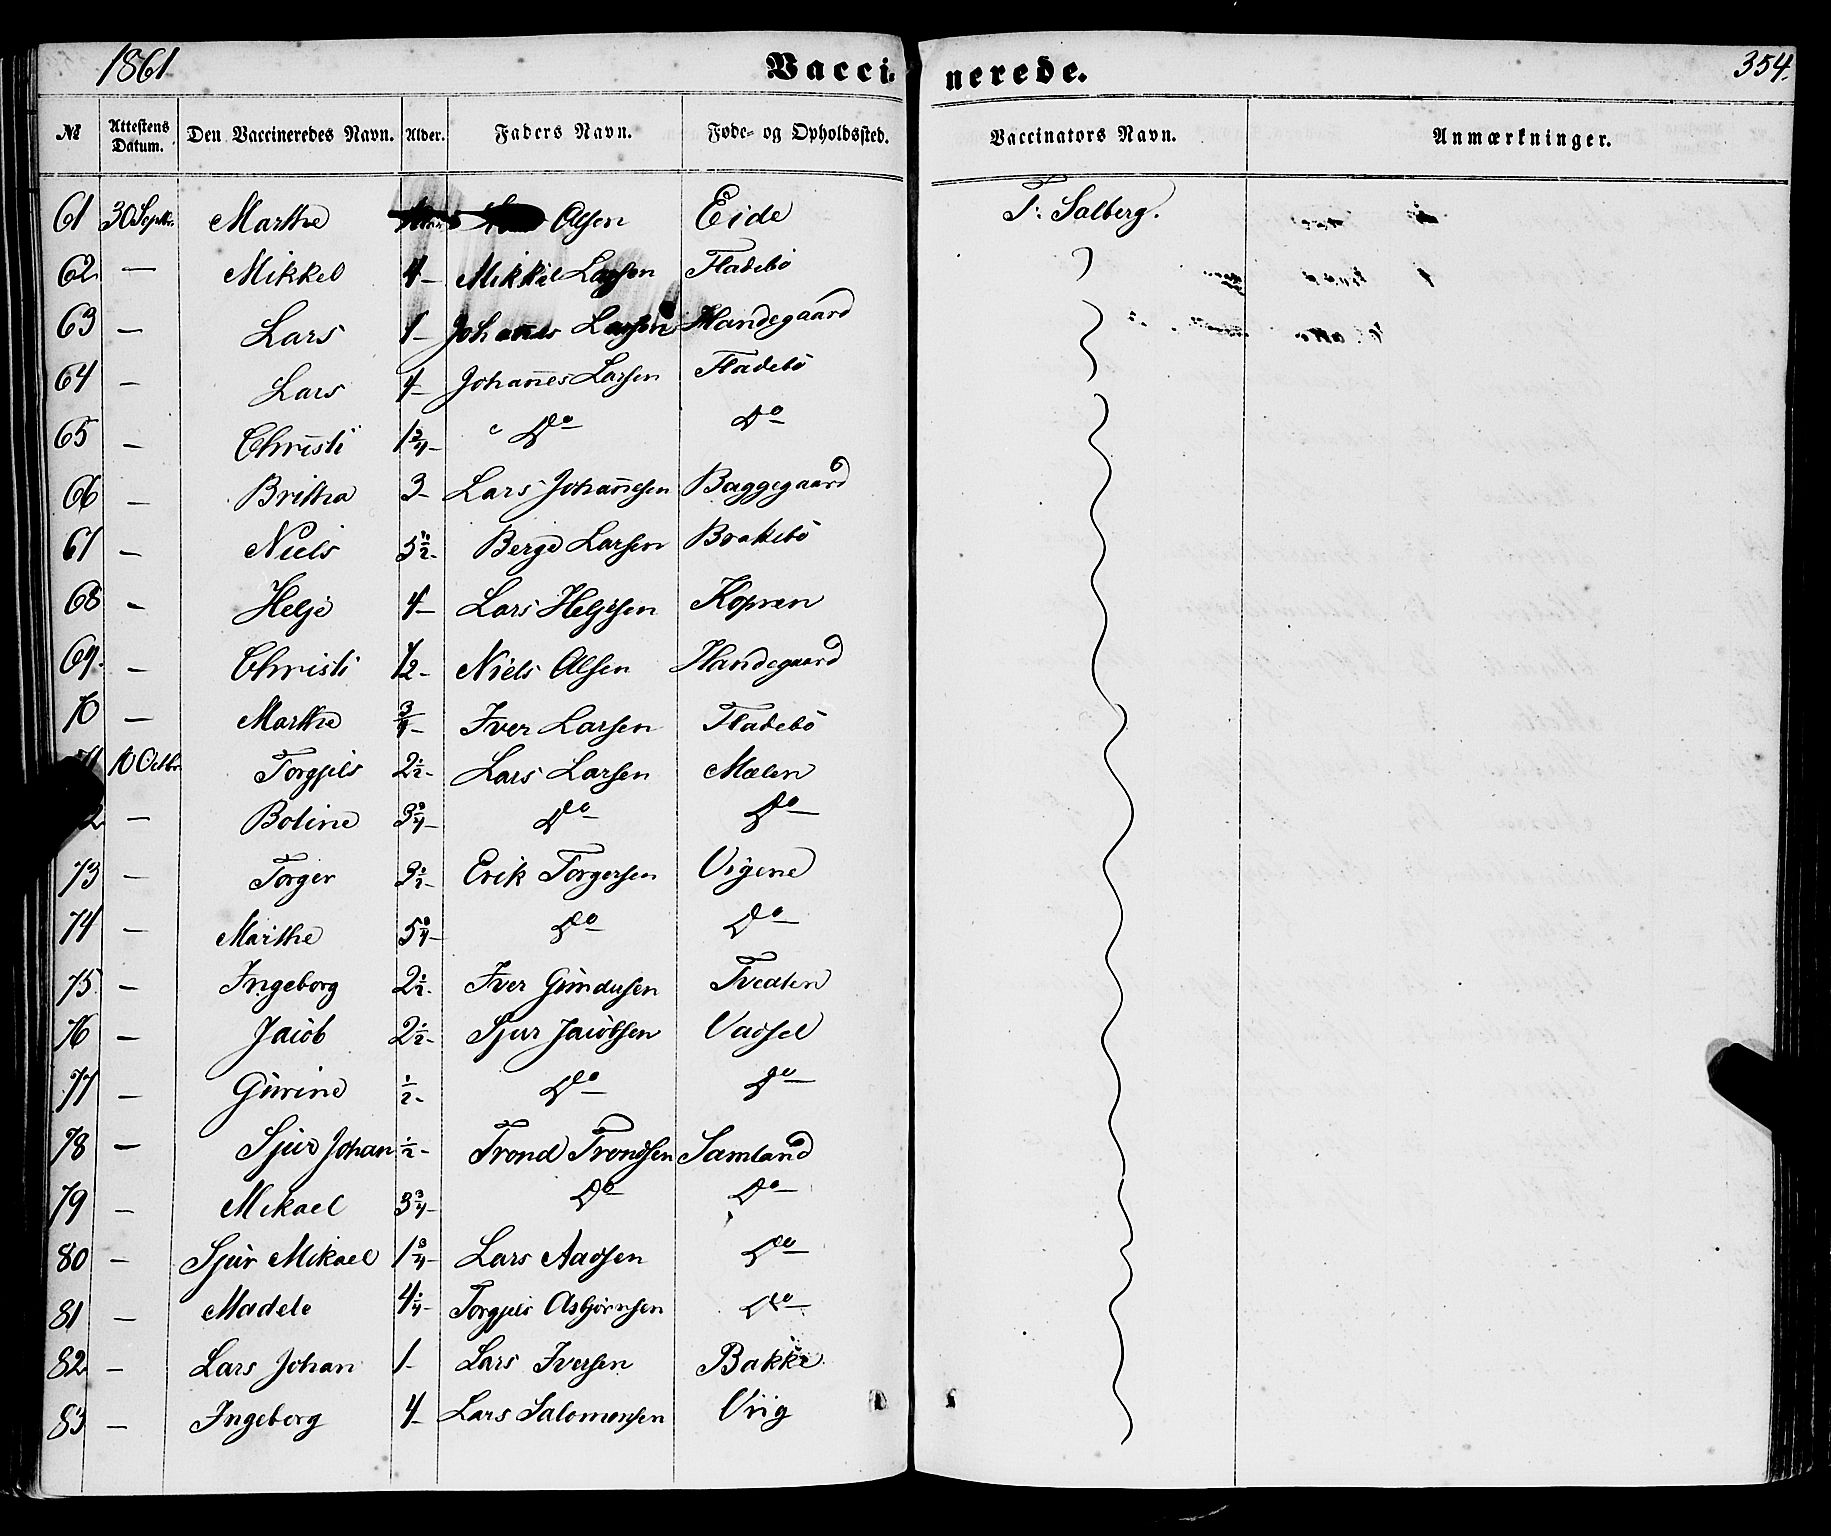 1861 Vacci- nerede. 354.
№ Attestens Datum. Den Vaccineredes Navn. Alder. Faders Navn. Føde- og Opholdssted. Vaccinators Navn. Anmærkninger.
61 30 Septbr. Marthe Olsen Eide T: Salberg.
62 — Mikkel 4 — Mikkel Larsen Fladebö
63 — Lars 1 — Johannes Larsen Handegaard
64 — Lars 4 — Johannes Larsen Fladebö
65 — Christi 1 3/4 — Do — Do —
66 — Britha 3 — Lars Johannesen Baggegaard
67 — Niels 5 1/2 — Berge Larsen Brakebö
68 — Helje 4 — Lars Heljesen Kopren
69. — Christi 1/2 — Niels Olsen Handegaard
70 — Marthe 3/4 — Iver Larsen Fladebö
71 10 Octbr. Torgjils 2 1/2 — Lars Larsen Mælen
2 — Boline 3 3/4 — Do — Do —
73 — Torger 3 1/2 — Erik Torgersen Vigene
74 — Marthe 5 3/4 — Do — Do —
75 — Ingeborg 2 1/2 — Iver Gundusen Tvedten
76 — Jacob 2 1/2 — Sjur Jacobsen Vadsel
77 — Gurine 1/2 — Do — Do —
78 — Sjur Johan 1/2 — Trond Trondsen Samland
79 — Mikael 3 3/4 — Do — Do —
80 — Sjur Mikael 1 3/4 — Lars Aadsen Do —
81 — Madele 4 1/4 — Torgjils Asbjörnsen Do —
82 — Lars Johan 1 — Lars Iversen Bakke
83 — Ingeborg 4 — Lars Salomonsen Viig